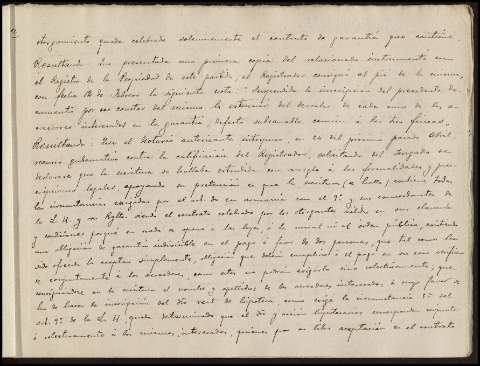 otorgamiento queda celebrado solemnemente el contrato de garantía que contiene.
Resultando: Que presentada una primera copia del relacionado instrumento en
el Registro de la Propiedad de este partido, el Registrador consignó al pié de la misma,
con fecha de Febrero la siguiente nota: "Suspendida la inscripcion del precedente do-
cumento por no constar del mismo la extension del derecho de cada uno de los a-
creedores interesados en la garantía, defecto subsanable comun á las tres fincas.
Resultando: Que el Notario autorizante interpuso, en el próximo pasado Abril,
recurso gubernativo contra la calificacion del Registrador, solicitando del Juzgado se
declarase que la escritura se hallaba extendida con arreglo á las formalidades y pres-
cripciones legales, apoyando su pretension en que la escritura contiene todas
las circunstancias exigidas por el art. de en armonía con el 9º y sus concordantes de
la L. H. y su Rgltº. siendo el contrato celebrado por los otorgantes válido en sus cláusulas
y condiciones porque en nada se opone á las leyes, á la moral ni al órden público, existiendo
una obligacion de garantía indivisible en el pago á favor de dos personas, que tal como han
sido ofrecida la aceptan simplemente, obligacion que deberá cumplirse ó el pago en su caso verificarse
conjuntamente á los acreedores, como estos no podrán exigirla sino colectivamente; que
consignándose en la escritura el nombre y apellidos de los acreedores interesados á cuyo favor se
ha de hacer la inscripcion del dro real de hipoteca como exige la circunstancia 5ª del
art. 9º de la L. H. queda determinado que el dro y accion hipotecarios corresponde conjunta
ó colectivamente á los mismos interesados, quienes por su libre aceptacion en el contrato